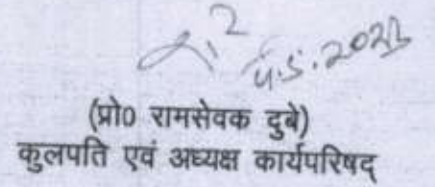 4.5.2023
(प्रो० रामसेवक दुबे)
कुलपति एवं अध्यक्ष कार्यपरिषद्